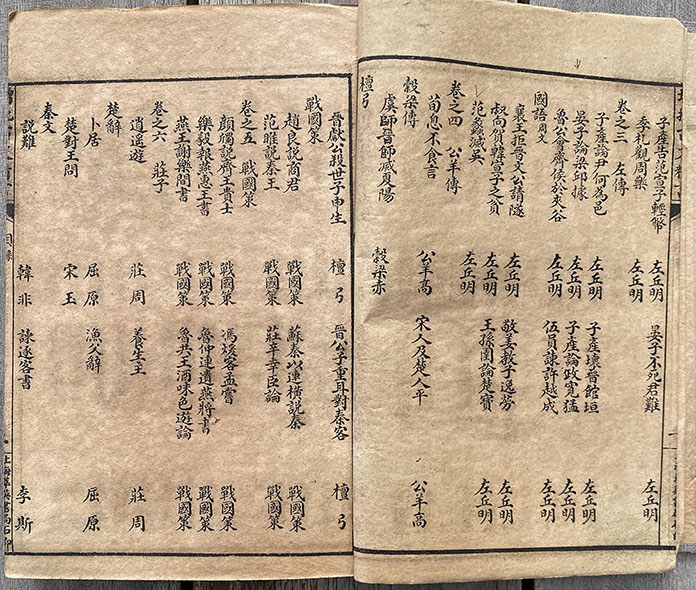 子產告范宣子輕幣 左丘明 晏子不死君難 左丘明
季札觀周樂 左丘明
卷之三 左傳
子產論尹何為邑 左丘明 子產壞晉館垣 左丘明
晏子論梁邱據 左丘明 子產論政寬猛 左丘明
魯公會齊侯於夾谷 左丘明 伍員諫許越成 左丘明
國語周文
襄王拒晉文公請隧 左丘明 敬姜教子逸勞 左丘明
叔向賀韓宣子憂貧 左丘明 王孫圉論楚寶 左丘明
范蠡滅吳 左丘明
卷之四 公羊傳
荀息不食言 公羊高 宋人及楚人平 公羊高
穀梁傳
虞師晉師滅夏陽 穀梁赤
檀弓
晉獻公殺世子申生 檀弓 晉公子重耳對秦客 檀弓
戰國策
趙良說商君 戰國策 蘇秦以連橫說秦 戰國策
范睢說秦王 戰國策 莊辛幸臣論 戰國策
卷之五 戰國策
顏斶說齊王貴士 戰國策 馮煖客孟嘗 戰國策
樂毅報燕惠王書 戰國策 魯仲連遺燕將書 戰國策
燕王謝樂間書 戰國策 魯共王酒味色遊論 戰國策
卷之六 莊子
逍遥遊 莊周 養生主 莊周
楚辭
卜居 屈原 漁父辭 屈原
楚對王問 宋玉
秦文
說難 韓非 諫逐客書 李斯